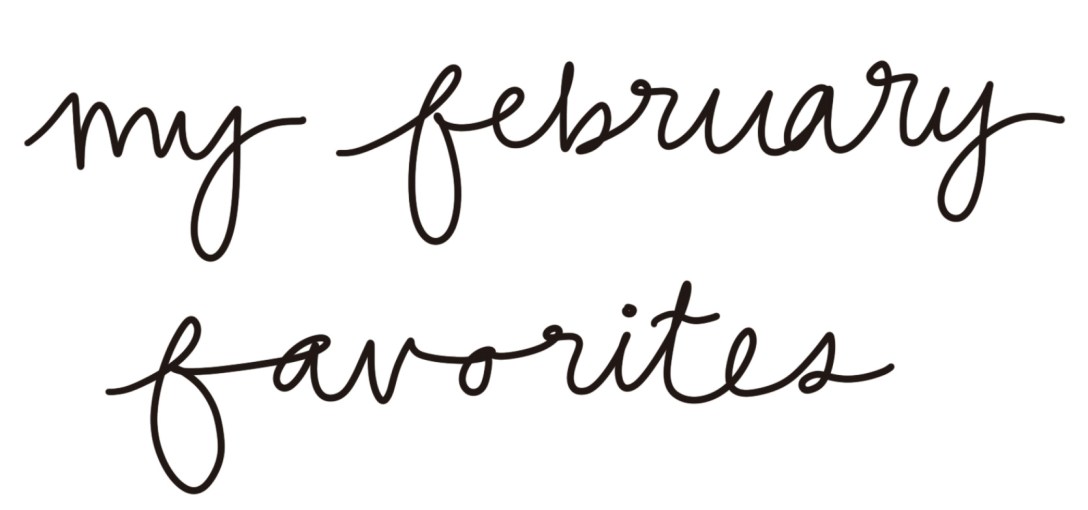 my february
favorites